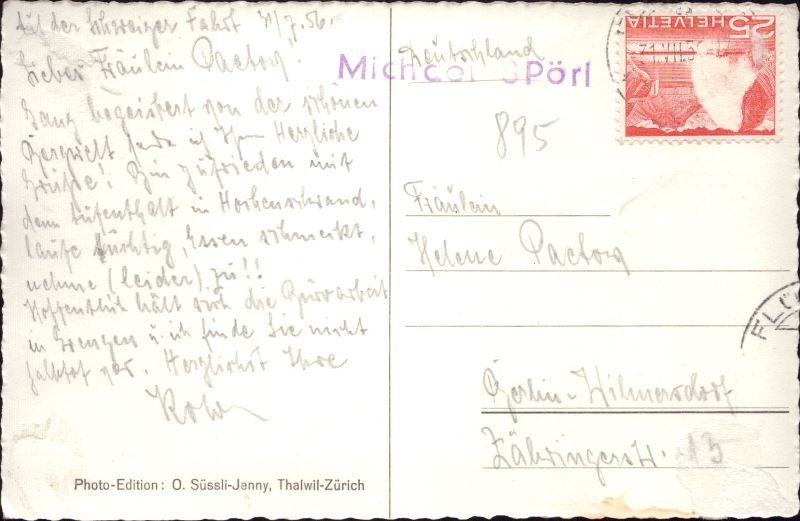 Auf der Schweizer Fahrt 31/7.56.
Liebes Fräulein Pactow!
Ganz begeistert von der schönen
Bergwelt sende ich Ihnen Herzliche
Grüße! Bin zufrieden mit
dem Aufenthalt in Höchenschwand,
laufe tüchtig, Essen schmeckt,
nehme (leider) zu!!
Hoffentlich hält sich die Büroarbeit
in Grenzen u. ich finde Sie nicht
halbtot vor. Herzlichst Ihre
Deutschland
Michael Spörl
895
Fräulein
Helene Pactow
Berlin-Wilmersdorf
Zähringerstr. 13
HELVETIA
25
31.VII.5
FLÜ
Photo-Edition: O. Süssli-Jenny, Thalwil-Zürich